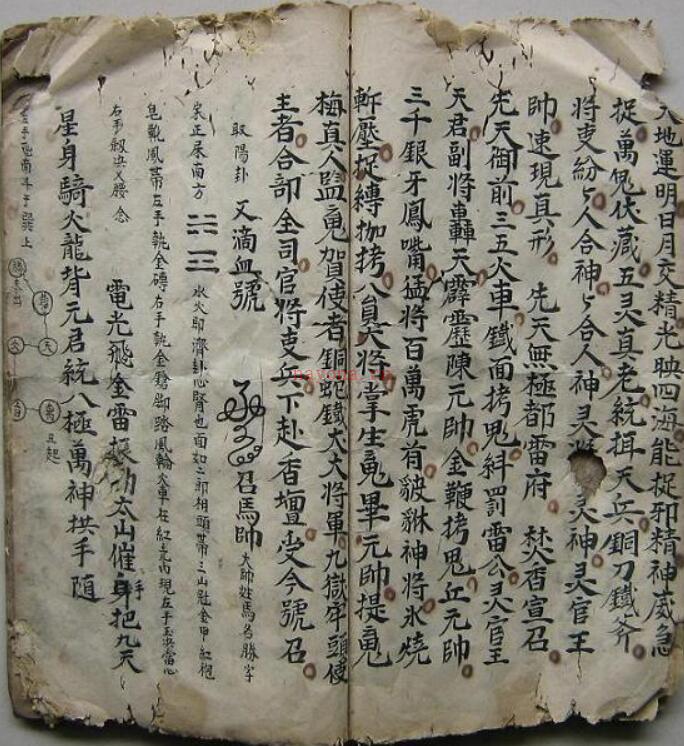 天地運明日月交精光映四海能捉邪精神威急
捉萬鬼伏藏五灵真老統揖天兵銅刀鐵斧
将吏紛々人合神々合人神灵 灵神灵官王
帥速現真形 先天無極都雷府 焚香宣召
先天御前三五火車鐵面拷鬼糾罰雷公灵官王
天君副将轟天霹靂陳元帥金鞭拷鬼丘元帥
三千銀牙鳳嘴猛将百萬虎首貔貅神将氷燒
斬壓捉縛枷拷八員大将掌生鬼畢元帥提鬼
梅真人監鬼賀使者銅蛇鐵犬大将軍九獄牢頭使
主者合部全司官将吏兵下赴香壇受今號召
取陽卦 又滴血號 召馬帥 大帥姓馬名勝字
正 南方 水火即濟卦心腎也面如二郎相頭帶三山 金甲紅袍
皂靴風帶左手執金磚右手執金鎗脚踏風輪火車在紅光内現左手玉決當心
右手劍決乂腰念 電光飛金雷振功太山催身手把九天
星身騎火龍背元君統八極萬神拱手随
左手 南斗于巽上